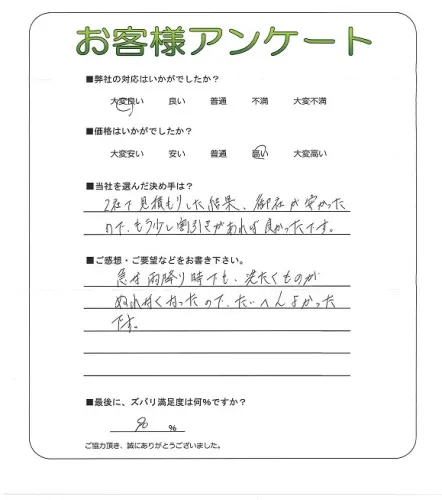 お客様アンケート
■弊社の対応はいかがでしたか?
大変良い 良い 普通 不満 大変不満
■価格はいかがでしたか?
大変安い 安い 普通 高い 大変高い
■当社を選んだ決め手は?
2社で見積もりした結果、御社が安かった
ので、もう少し割引きがあれば良かったです。
■ご感想・ご要望などをお書き下さい。
急な雨降り時でも、洗たくものが
ぬれなくなったので、たいへんよかった
です。
■最後に、ズバリ満足度は何%ですか?
90 %
ご協力頂き、誠にありがとうございました。